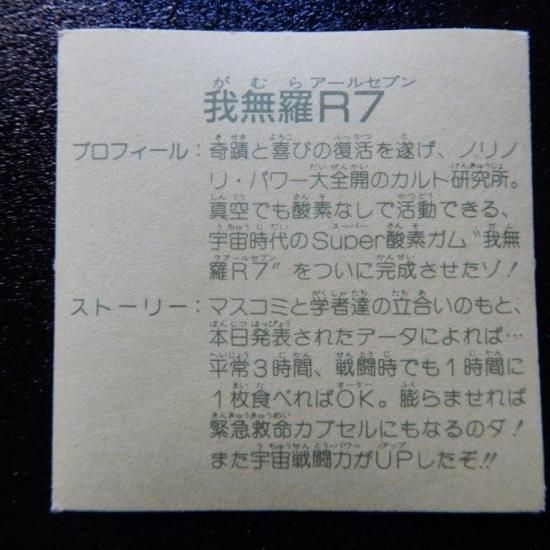 がむらアールセブン
我無羅R7
プロフィール：奇蹟と喜びの復活を遂げ、ノリノ
リ・パワー大全開のカルト研究所。
真空でも酸素なしで活動できる、
宇宙時代のSuper酸素ガム“我無
羅R7”をついに完成させたゾ！
ストーリー：マスコミと学者達の立合いのもと、
本日発表されたデータによれば…
平常3時間、戦闘時でも1時間に
1枚食べればOK。膨らませれば
緊急救命カプセルにもなるのダ！
また宇宙戦闘力がUPしたぞ!!